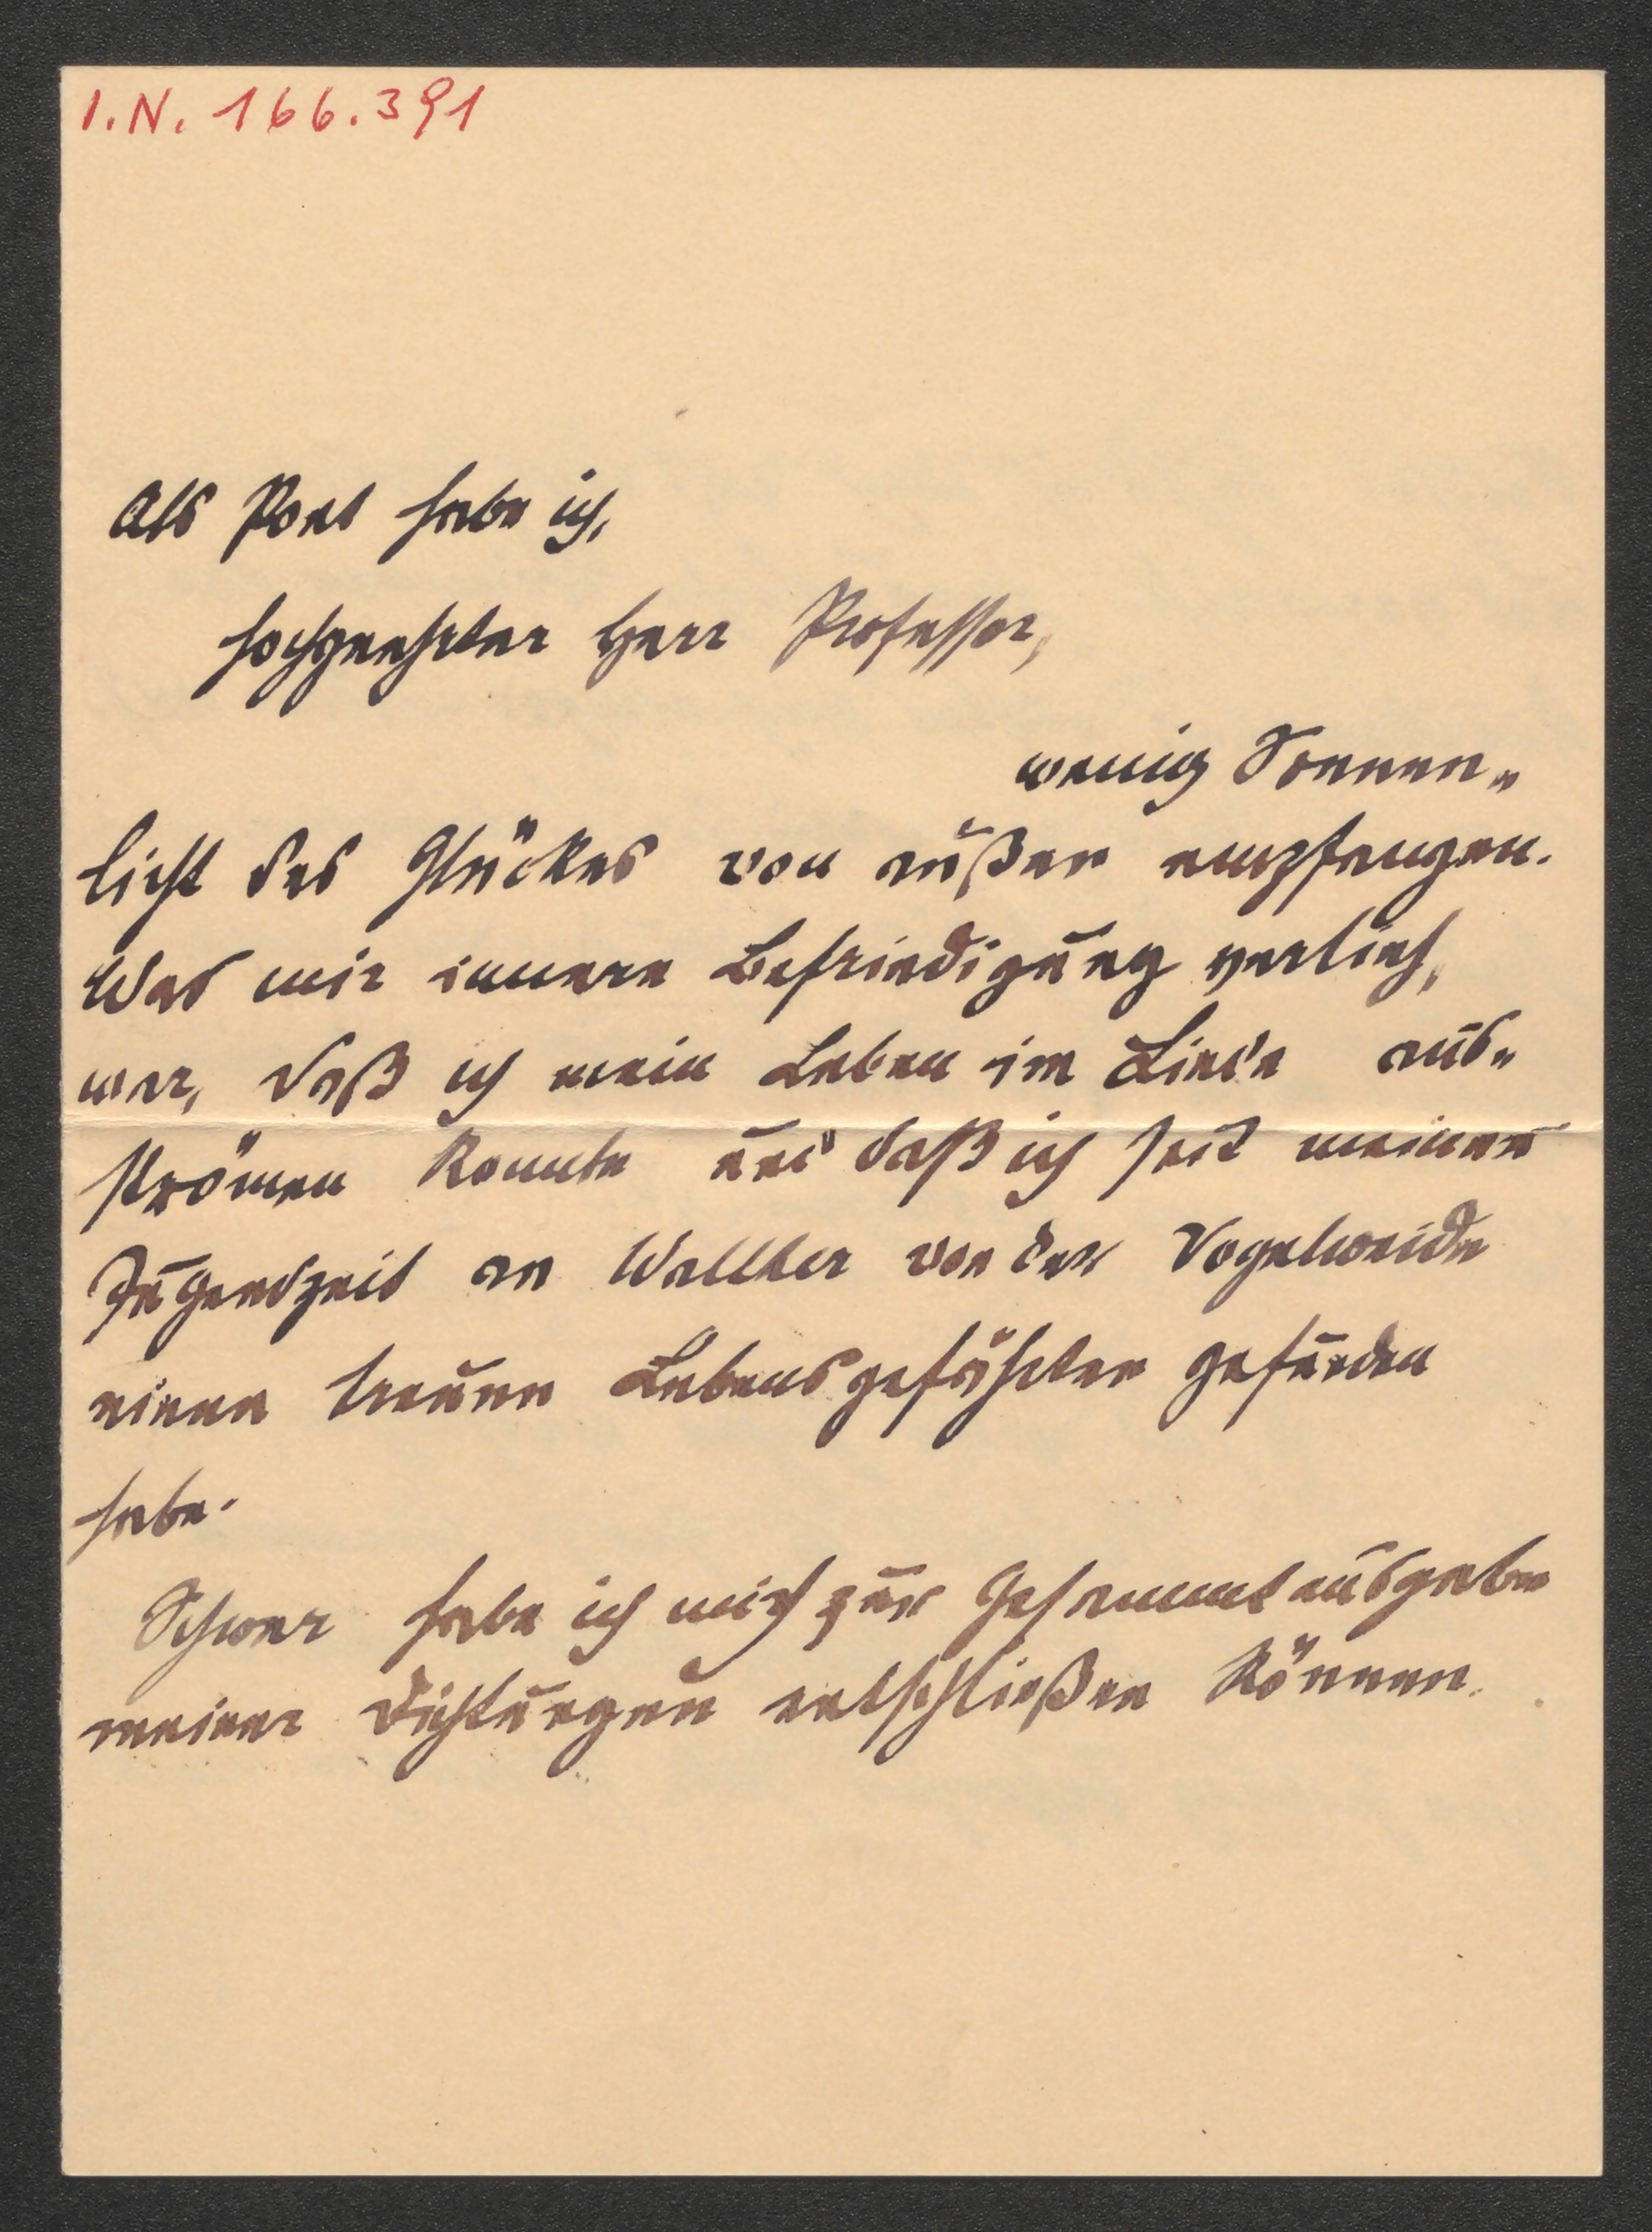 I.N. 166.391
Als Poet habe ich,
hochgeehrter Herr Professor,
wenig Sonnen„
licht des Glückes von außen empfangen.
Was mir innere Befriedigung verlieh,
war, daß ich mein Leben im Liede aus„
strömen konnte und daß ich seit meiner
Jugendzeit an Walther von der Vogelweide
einen treuen Lebensgefährten gefunden
habe.
Schwer habe ich mich zur Gesammtausgabe
meiner Dichtungen entschließen können.